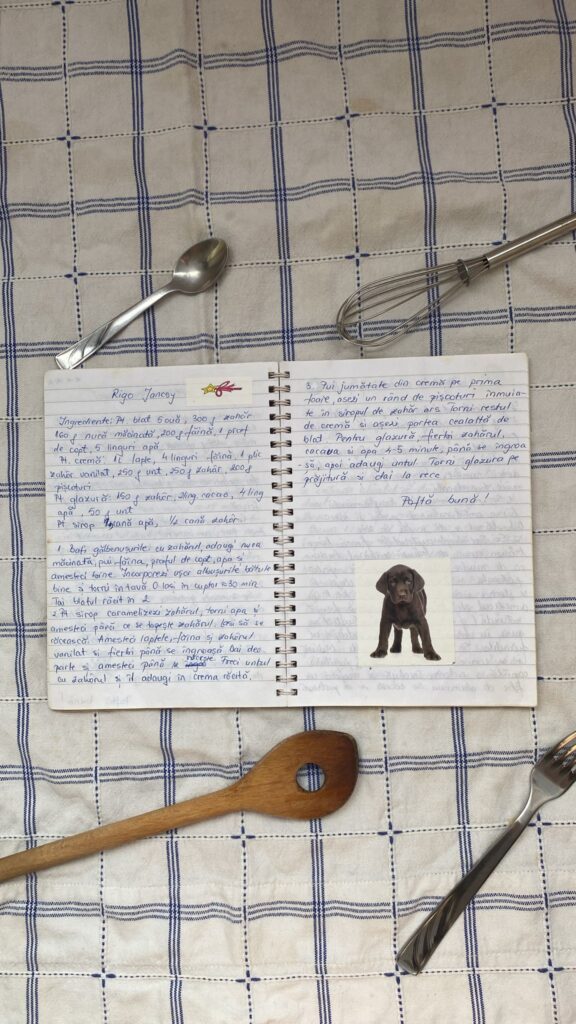 Rigo Jancsy
Ingrediente: Pt. blat 5 ouă, 300 g zahăr
160 g nucă măcinată, 200 g făină, 1 praf
de copt, 5 linguri apă
Pt. cremă: 1 l lapte, 4 linguri făină, 1 plic
zahăr vanilat, 250 g unt, 250 g zahăr, 200 g
pișcoturi
Pt. glazură: 150 g zahăr, 2 ling cacao, 4 ling
apă, 50 g unt
Pt. sirop cană apă, 1/2 cană zahăr.
1. Bați gălbenușurile cu zahărul, adaugi nuca
măcinată, pui făina, praful de copt, apa și
amesteci bine. Încorporezi ușor albușurile bătute
bine și torni în tavă. O lași în cuptor ≈ 30 min
Tai blatul răcit în 2
2. Pt sirop caramelizezi zahărul, torni apa și
amesteci până ce se topește zahărul, lași să se
răcească. Amesteci laptele, făina și zahărul
vanilat și fierbi până se îngroașă. Dai deo
parte și amesteci până se răcește. Freci untul
cu zahărul și îl adaugi în crema răcită,
3. Pui jumătate din cremă pe prima
foaie, așezi un rând de pișcoturi înmuia-
te în siropul de zahăr ars. Torni restul
de cremă și așezi partea cealaltă de
blat. Pentru glazură, fierbi zahărul,
cacaua și apa 4-5 minute, până se îngroa-
să, apoi adaugi untul. Torni glazura pe
prăjitură și dai la rece.
Poftă bună!